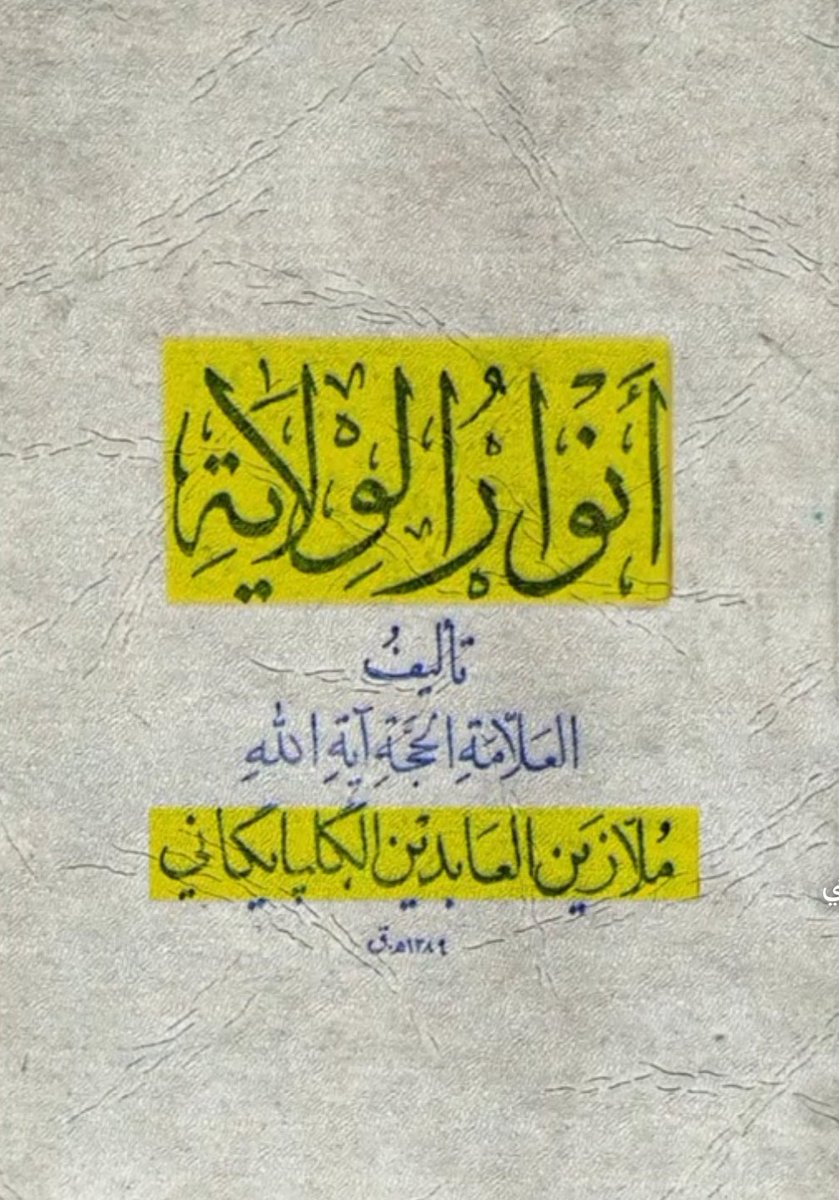 أَنْوارُ الْوِلَايَةِ
تأليفُ
العَلّامَةِ الحُجَّةِ آيَةِ اللهِ
مُلّا زَين العَابدْين الگلپايگاني
١٢٨٩ه‍.ق
ي